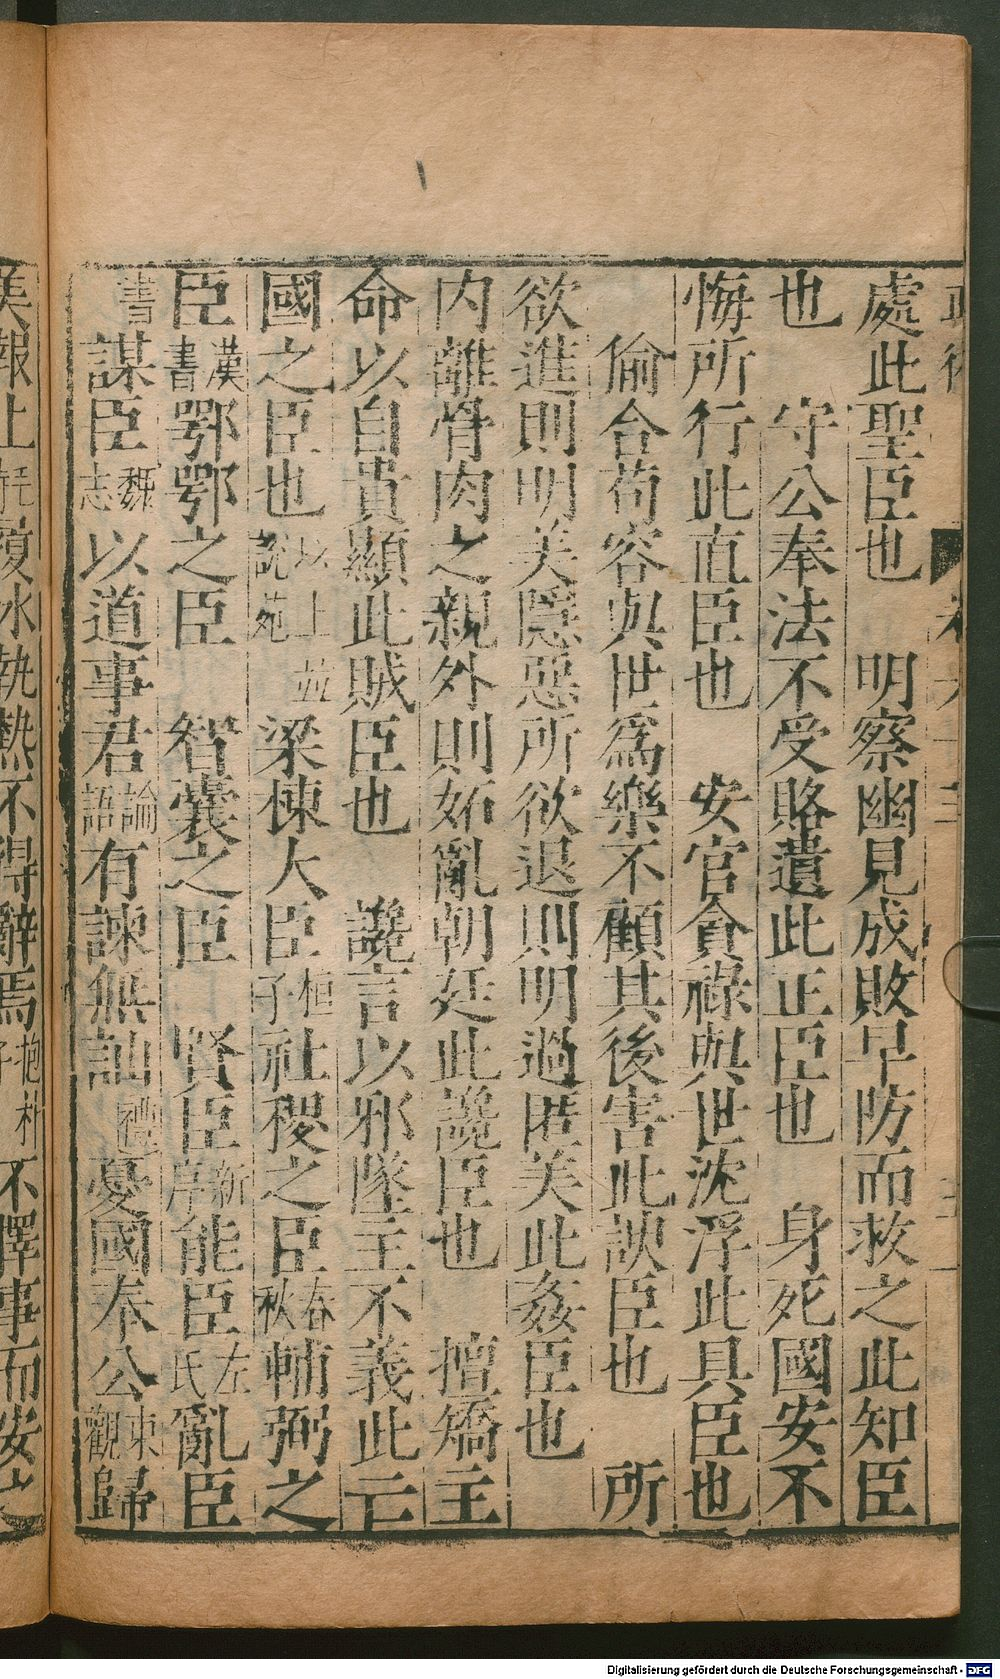 處此聖臣也　明察幽見成敗早防而救之此知臣
也　守公奉法不受賂遺此正臣也　身死國安不
悔所行此直臣也　安官貪祿與世沈浮此具臣也
偷合苟容與世爲樂不顧其後害此諛臣也　所
欲進則明美隱惡所欲退則明過匿美此姦臣也
内離骨肉之親外則妬亂朝廷此讒臣也　擅矯主
命以自貴顯此賊臣也　讒言以邪墜主不義此亡
國之臣也以上並說苑梁棟大臣桓子社稷之臣春秋輔弼之
臣漢書鄂鄂之臣　智囊之臣　賢臣新序能臣左氏亂臣
書謀臣魏志以道事君論語有諫無訕禮憂國奉公東觀歸
美報上毛詩 冰執熱不得辭焉抱朴子不擇事而安之
Digitalisierung gefördert durch die Deutsche Forschungsgemeinschaft - DFG